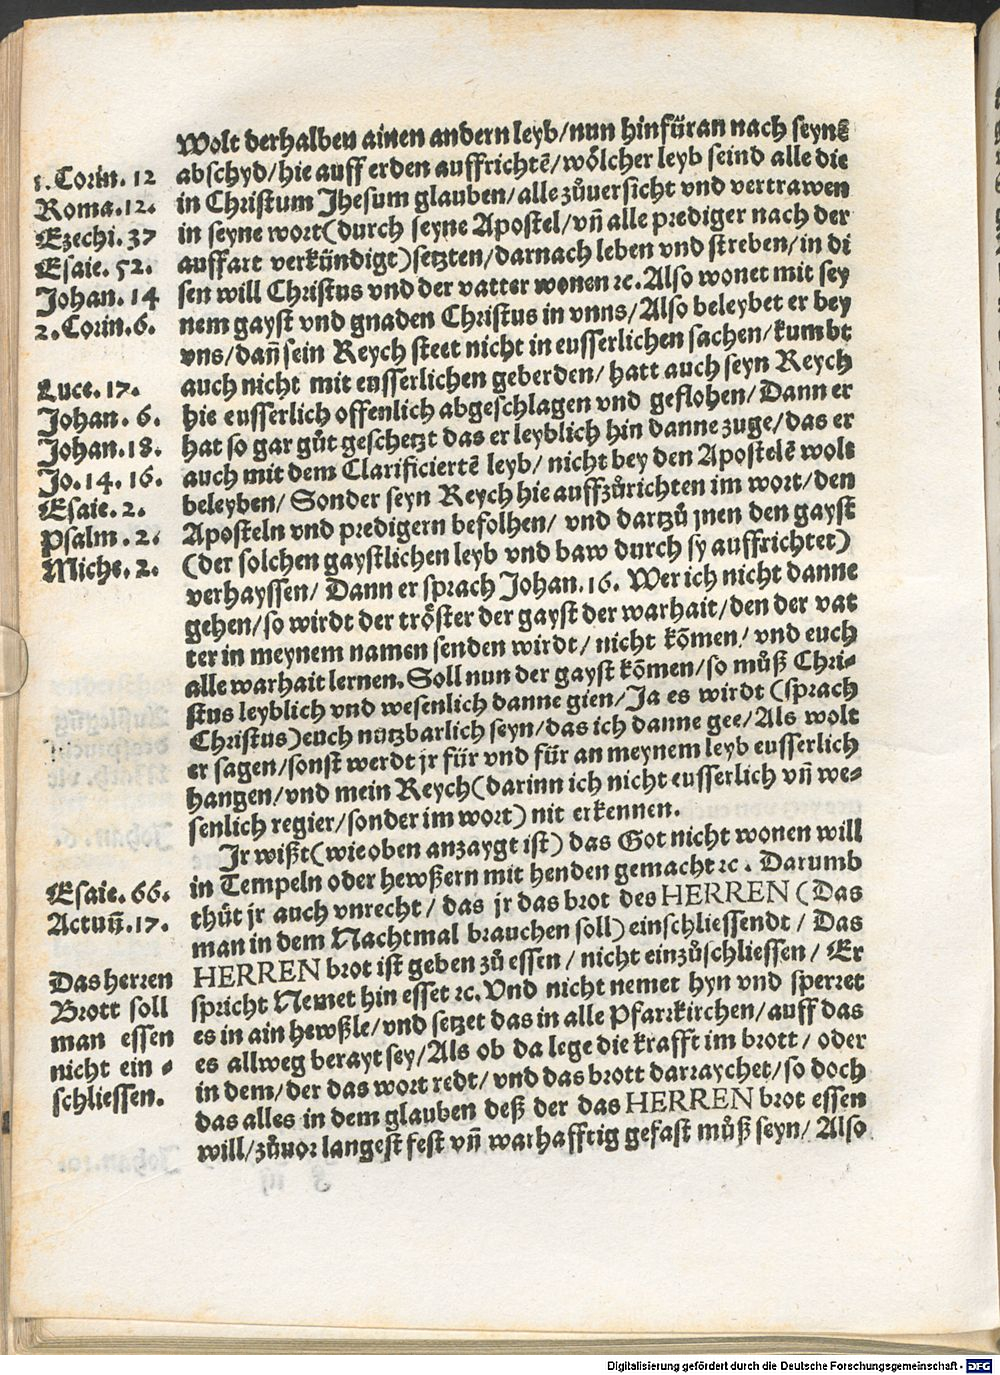 Wolt derhalben ainen andern leyb/nun hinfüran nach seynē
1. Corin. 12 abschyd/hie auff erden auffrichtē/wölcher leyb seind alle die
Roma. 12. in Christum Jhesum glauben/alle zůuersicht vnd vertrawen
Ezechi. 37 in seyne wort(durch seyne Apostel/vn̄ alle prediger nach der
Esaie. 52. auffart verkündigt)setzten/darnach leben vnd streben/in di
Johan. 14 sen will Christus vnd der vatter wonen ꝛc. Also wonet mit sey
2. Corin. 6. nem gayst vnd gnaden Christus in vnns/Also beleybet er bey
vns/dan̄ sein Reych steet nicht in eusserlichen sachen/kumbt
Luce. 17. auch nicht mit eusserlichen geberden/hatt auch seyn Reych
Johan. 6. hie eusserlich offenlich abgeschlagen vnd geflohen/Dann er
Johan. 18. hat so gar gůt geschetzt das er leyblich hin danne zuge/das er
Jo. 14. 16. auch mit dem Clarificiertē leyb/nicht bey den Apostelē wolt
Esaie. 2. beleyben/Sonder seyn Reych hie auffzůrichten im wort/den
Psalm. 2. Aposteln vnd predigern befolhen/vnd dartzů jnen den gayst
Miche. 2. (der solchen gaystlichen leyb vnd baw durch sy auffrichtet)
verhayssen/Dann er sprach Johan. 16. Wer ich nicht danne
gehen/so wirdt der tröster der gayst der warhait/den der vat
ter in meynem namen senden wirdt/nicht kōmen/vnd euch
alle warhait lernen. Soll nun der gayst kōmen/so můß Chri-
stus leyblich vnd wesenlich danne gien/Ja es wirdt (sprach
Christus)euch nutzbarlich seyn/das ich danne gee/Als wolt
er sagen/sonst werdt jr für vnd für an meynem leyb eusserlich
hangen/vnd mein Reych(darinn ich nicht eusserlich vn̄ we-
senlich regier/sonder im wort) nit erkennen.
Jr wißt(wie oben anzaygt ist) das Got nicht wonen will
Esaie. 66. in Tempeln oder hewßern mit henden gemacht ꝛc. Darumb
Actuū. 17. thůt jr auch vnrecht/das jr das brot des HERREN (Das
man in dem Nachtmal brauchen soll) einschliessendt/Das
Das herren HERREN brot ist geben zů essen/nicht einzůschliessen/Er
Brott soll spricht Nemet hin esset ꝛc. Vnd nicht nemet hyn vnd sperret
man essen es in ain hewßle/vnd setzet das in alle Pfarrkirchen/auff das
nicht ein- es allweg berayt sey/Als ob da lege die krafft im brott/oder
schliessen. in dem/der das wort redt/vnd das brott darraychet/so doch
das alles in dem glauben deß der das HERREN brot essen
will/zůuor langest fest vn̄ warhafftig gefast můß seyn/Also
Digitalisierung gefördert durch die Deutsche Forschungsgemeinschaft - DFG